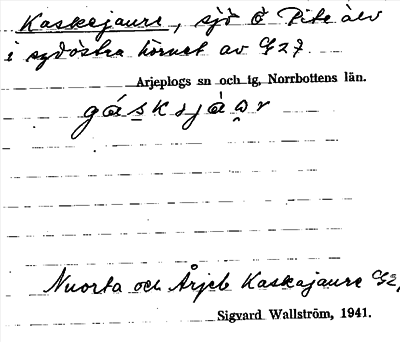 Kaskajaure, sjö Ö Pite älv
i sydöstra hörnet av G27.
Arjeplogs sn och tg, Norrbottens län.
Nuorta och Årjeb Kaskajaure G2,
Sigvard Wallström, 1941.